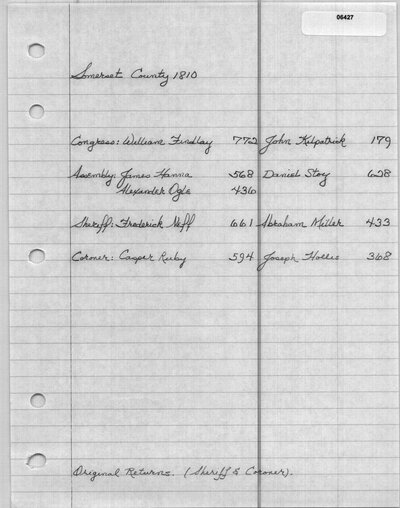 06427
Somerset County 1810
Congress: William Findlay 772 John Kilpatrick 179
Assembly: James Hanna 568 Daniel Stoy 628
Alexander Ogle 436
Sheriff: Frederick Neff 661 Abraham Miller 433
Coroner: Casper Ruby 594 Joseph Hollis 368
Original Returns. (Sheriff & Coroner).